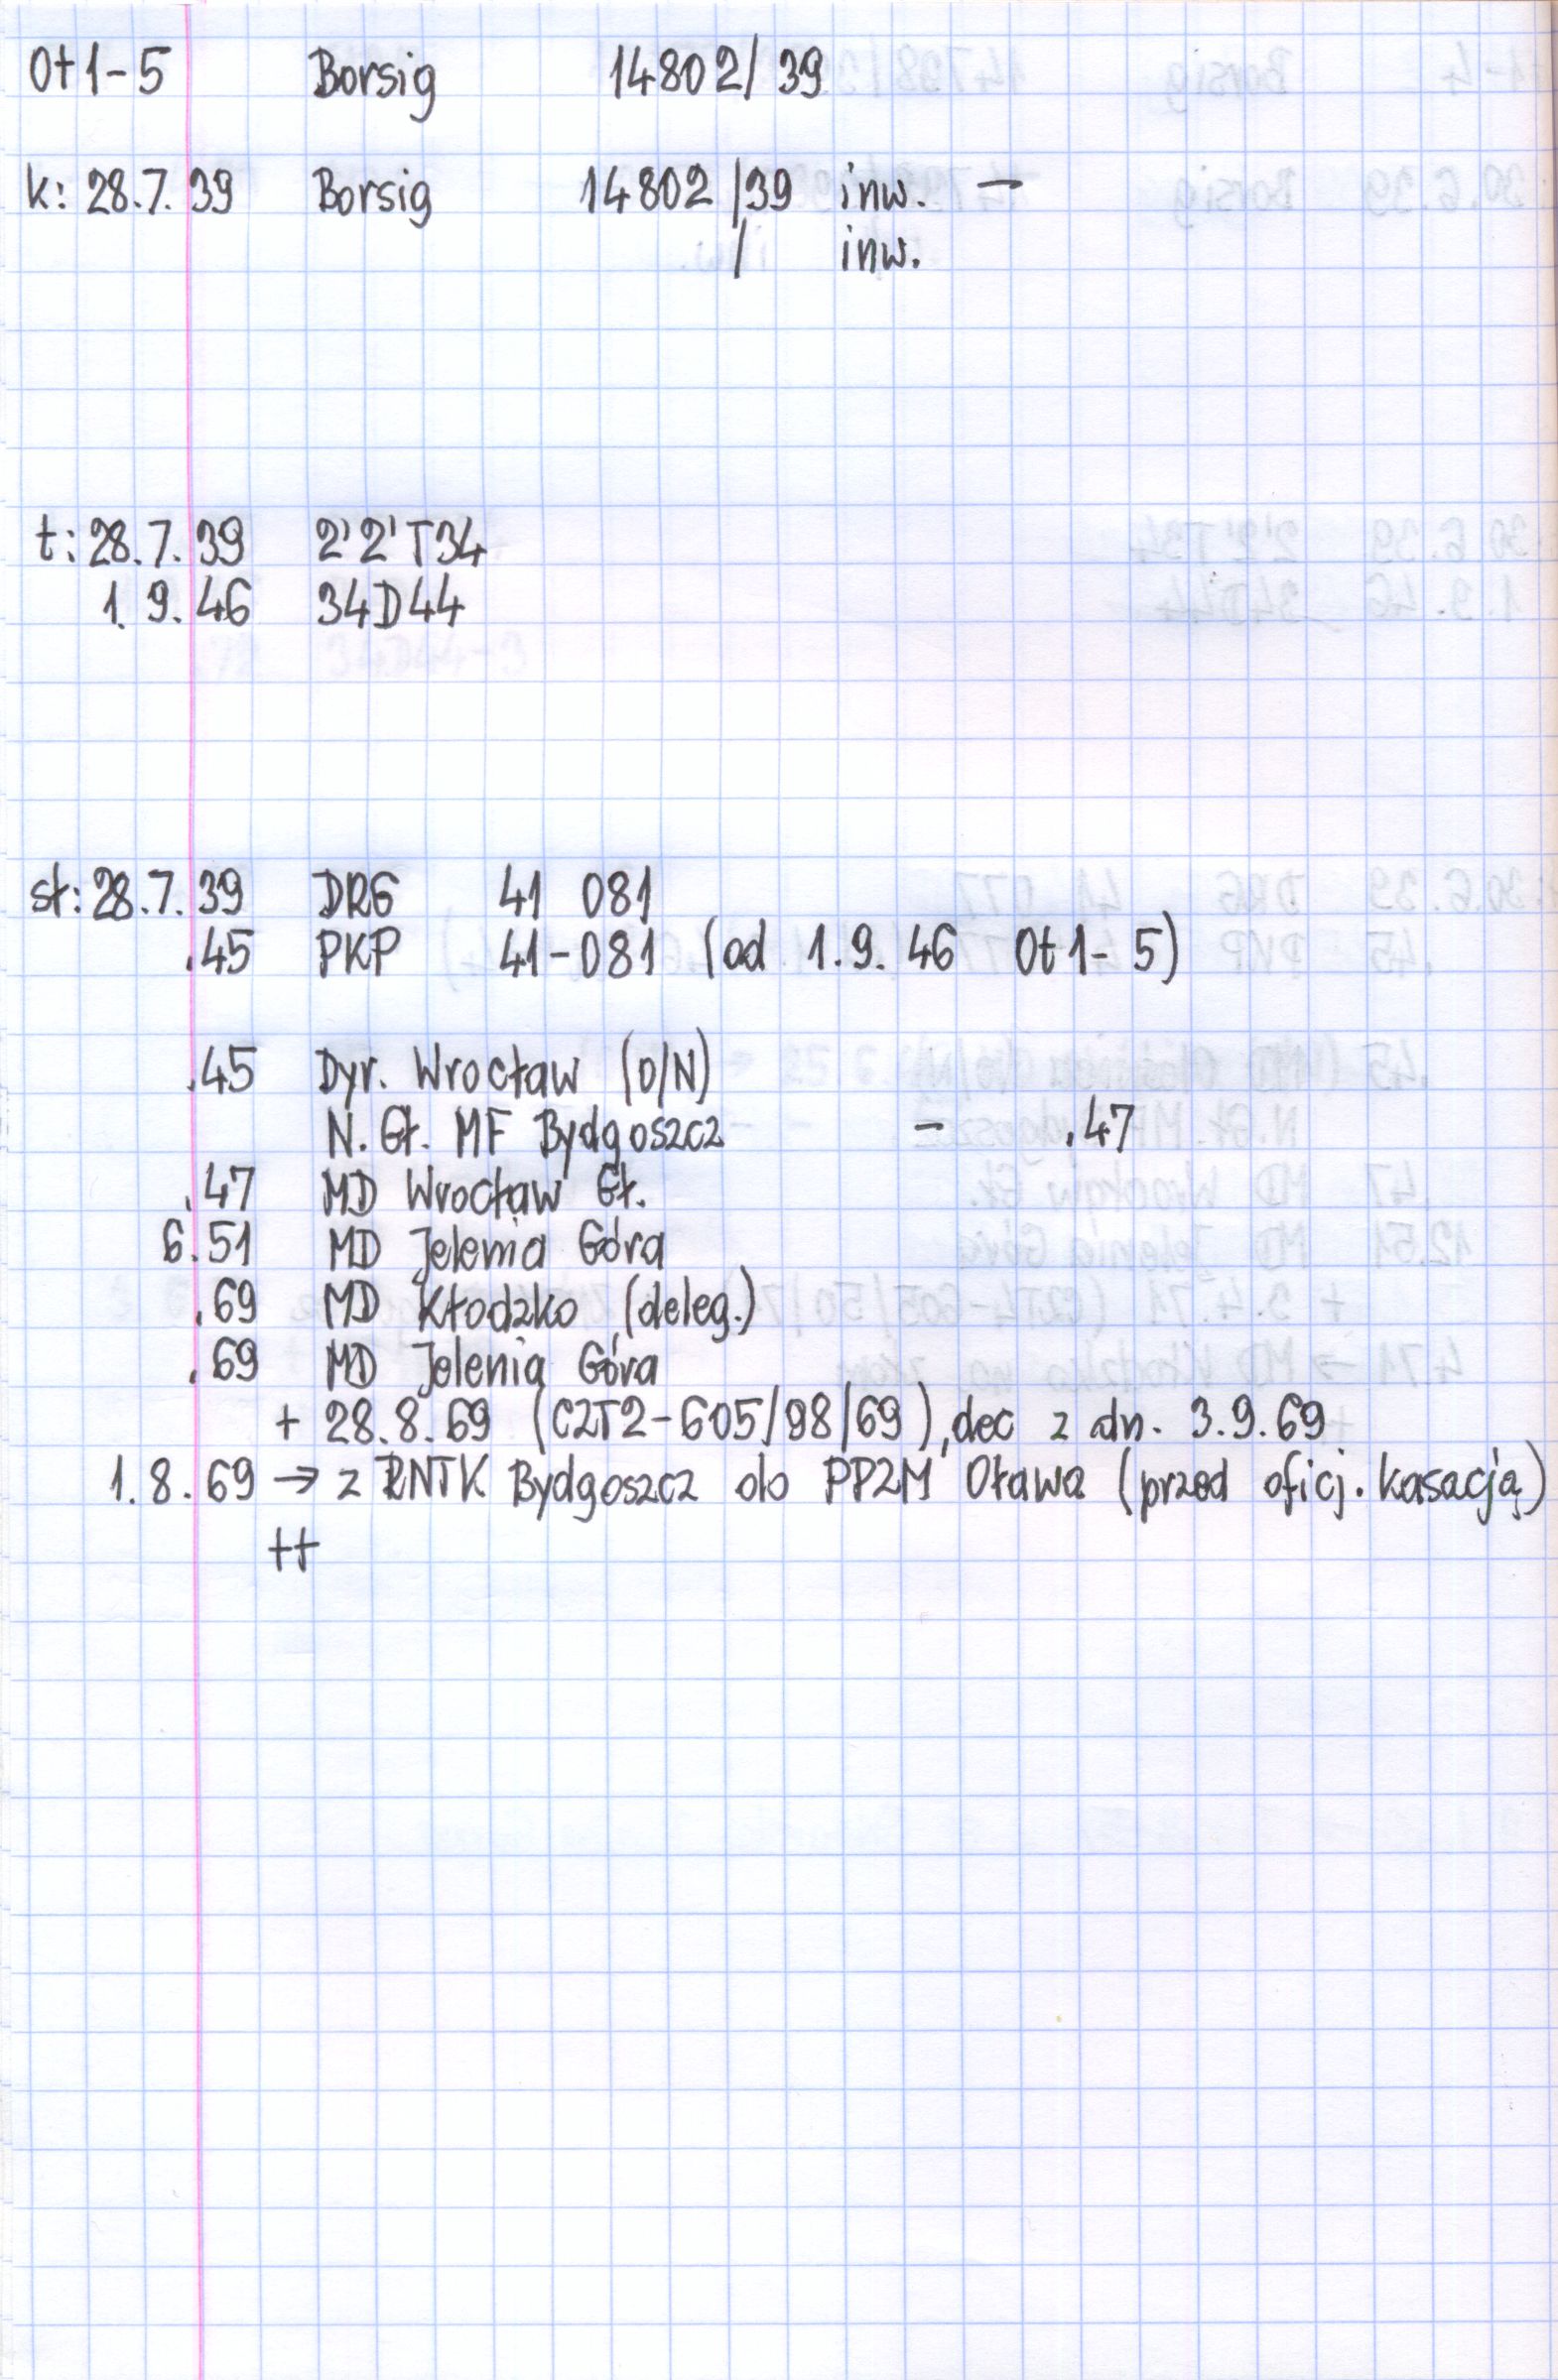 Ot1-5 Borsig 14802/39
k: 28.7.39 Borsig 14802/39 inw. –
/ inw.
t: 28.7.39 2'2'T34
1.9.46 34D44
st: 28.7.39 DRG 41 081
.45 PKP 41-081 (od 1.9.46 Ot1-5)
.45 Dyr. Wrocław (D/N)
N. Gł. MF Bydgoszcz – .47
.47 MD Wrocław Gł.
6.51 MD Jelenia Góra
.69 MD Kłodzko (deleg.)
.69 MD Jelenia Góra
+ 28.8.69 (CZT2-605/98/69), dec z dn. 3.9.69
1.8.69 → z RNTK Bydgoszcz do PPZM Oława (przed oficj. kasacją)
++